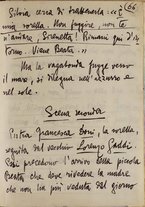 Silvia cerca di trattenerla. - È
una sorella. Non fuggire, non te
n'andare, Sirenetta! Rimani qui d'at-
torno. Viene Beata. 66
Ma la vagabonda fugge pel
mare, si dilegua nell'azzurro e
nel sole.
Scena seconda
Entra Francesca Doni, la sorella,
seguita dal vecchio Lorenzo Gaddi.
Essi precedono l'arrivo della piccola
Beata che deve rivedere la madre
che non ha veduta dal giorno